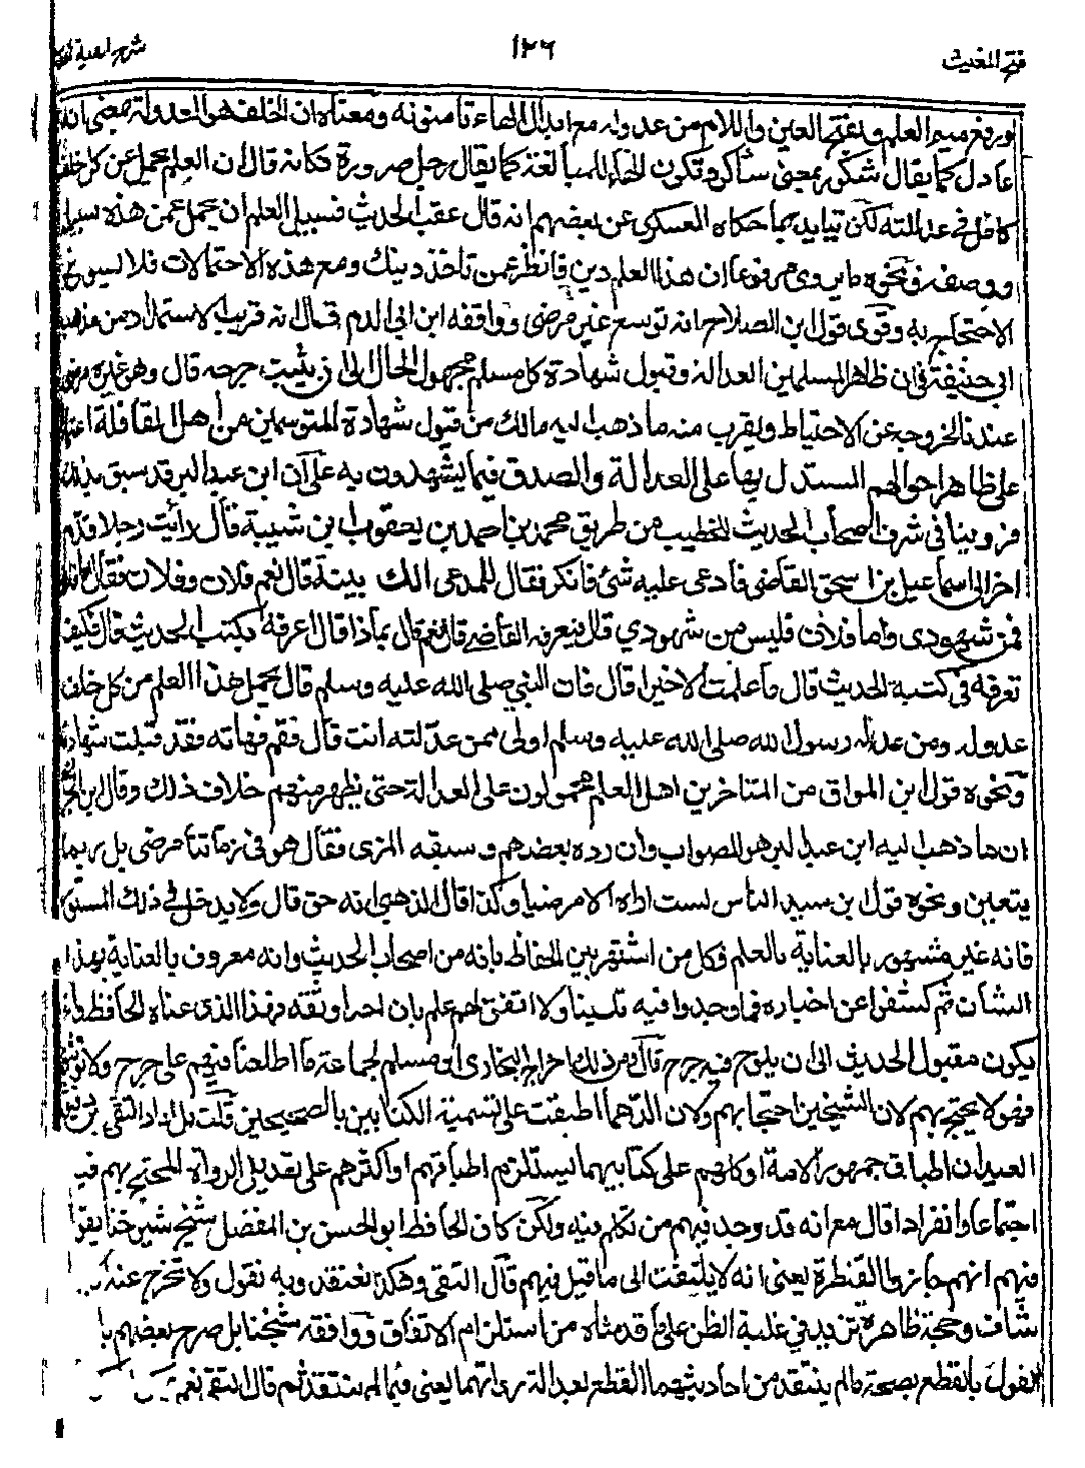 فتح المغيث ١٢٦ شرح الفية
ورفع ميم العلم وبفتح العين واللام من عدوله مع ابدال الهاء تاء منونه ومعناه ان الخلف هو العدولة بمعنى انه
عادل كما يقال شكور بمعنى شاكر وتكون الهاء للمبالغة كما يقال رجل صرورة فكانه قال ان العلم يحمل عن كل خلف
كامل في عدالته لكن يتايد بما حكاه العسكري عن بعضهم انه قال عقب الحديث فسبيل العلم ان يحمل عمن هذه سبيله
ووصفه ونحوه ما يروى مرفوعا ان هذا العلم دين فانظر عمن تاخذ دينك ومع هذه الاحتمالات فلا يسوغ
الاحتجاج به وقوى قول ابن الصلاح انه توسع غير مرضي ووافقه ابن ابي الدم فقال انه قريب الاستمداد من مذهب
ابي حنيفة في ان ظاهر المسلمين العدالة وقبول شهادة كل مسلم مجهول الحال الى ان يثبت جرحه قال وهو غير مرضي
عندنا لخروجه عن الاحتياط ويقرب منه ما ذهب اليه مالك من قبول شهادة المتوسمين من اهل القافلة اعتمادا
على ظاهر احوالهم المستدل بها على العدالة والصدق فيما يشهدون به على ان ابن عبد البر قد سبق بذلك
فروينا في شرف اصحاب الحديث للخطيب من طريق محمد بن احمد بن يعقوب ابن شيبة قال رايت رجلا قدم
اخر الى اسماعيل بن اسحق القاضي فادعى عليه شئ فانكر فقال للمدعي الك بينة قال نعم فلان وفلان فقال اما فلان
فمن شهودي واما فلان فليس من شهودي قال فيعرفه القاضي قال نعم قال بماذا قال اعرفه بكتب الحديث قال فكيف
تعرفه في كتبه الحديث قال ما علمت الا خيرا قال فان النبي صلى الله عليه وسلم قال يحمل هذا العلم من كل خلف
عدوله ومن عدله رسول الله صلى الله عليه وسلم اولى ممن عدلته انت قال فقم فهاته فقد قبلت شهادته
ونحوه قول ابن المواق من المتاخرين اهل العلم محمولون على العدالة حتى يظهر منهم خلاف ذلك وقال ابن الجزري
ان ما ذهب اليه ابن عبد البر هو الصواب وان رده بعضهم وسبقه المزي فقال هو في زماننا مرضي بل ربما
يتعين ونحوه قول ابن سيد الناس لست اراه الا مرضيا وكذا قال الذهبي انه حق قال ولا يدخل في ذلك المستور
فانه غير مشهور بالعناية بالعلم فكل من اشتهر بين الحفاظ بانه من اصحاب الحديث وانه معروف بالعناية بهذا
الشان ثم كشفوا عن اخباره فما وجدوا فيه تليينا ولا اتفق لهم علم بان احدا وثقه فهذا الذي عناه الحافظ وانه
يكون مقبول الحديث الى ان يلوح فيه جرح قال ومن ذلك اخراج البخاري ومسلم لجماعة ما اطلعنا فيهم على جرح ولا توثيق
فهؤلاء يحتج بهم لان الشيخين احتجا بهم ولان الدهما اطبقت على تسمية الكتابين بالصحيحين قلت بل افاد التقي بن دقيق
العيد ان اطباق جمهور الامة او كلهم على كتابيهما يستلزم اطباقهم او اكثرهم على تعديل الرواة المحتج بهم فيهما
اجتماعا وانفرادا قال مع انه قد وجد فيهم من تكلم فيه ولكن كان الحافظ ابو الحسن بن المفضل شيخ شيوخنا يقول
فيهم انهم جازوا القنطرة يعني انه لا يلتفت الى ما قيل فيهم قال التقي وهكذا نعتقد وبه نقول ولا نخرج عنه
شاف وحجة ظاهرة تزيد في غلبة الظن على ما قدمناه من استلزام الاتفاق ووافقه شيخنا بل صرح بعضهم با
القول بالقطع بصحة ما لم ينتقد من احاديثهما القطع بعدالة رواتهما يعني فيما لم ينتقد ثم قال التقي نعم